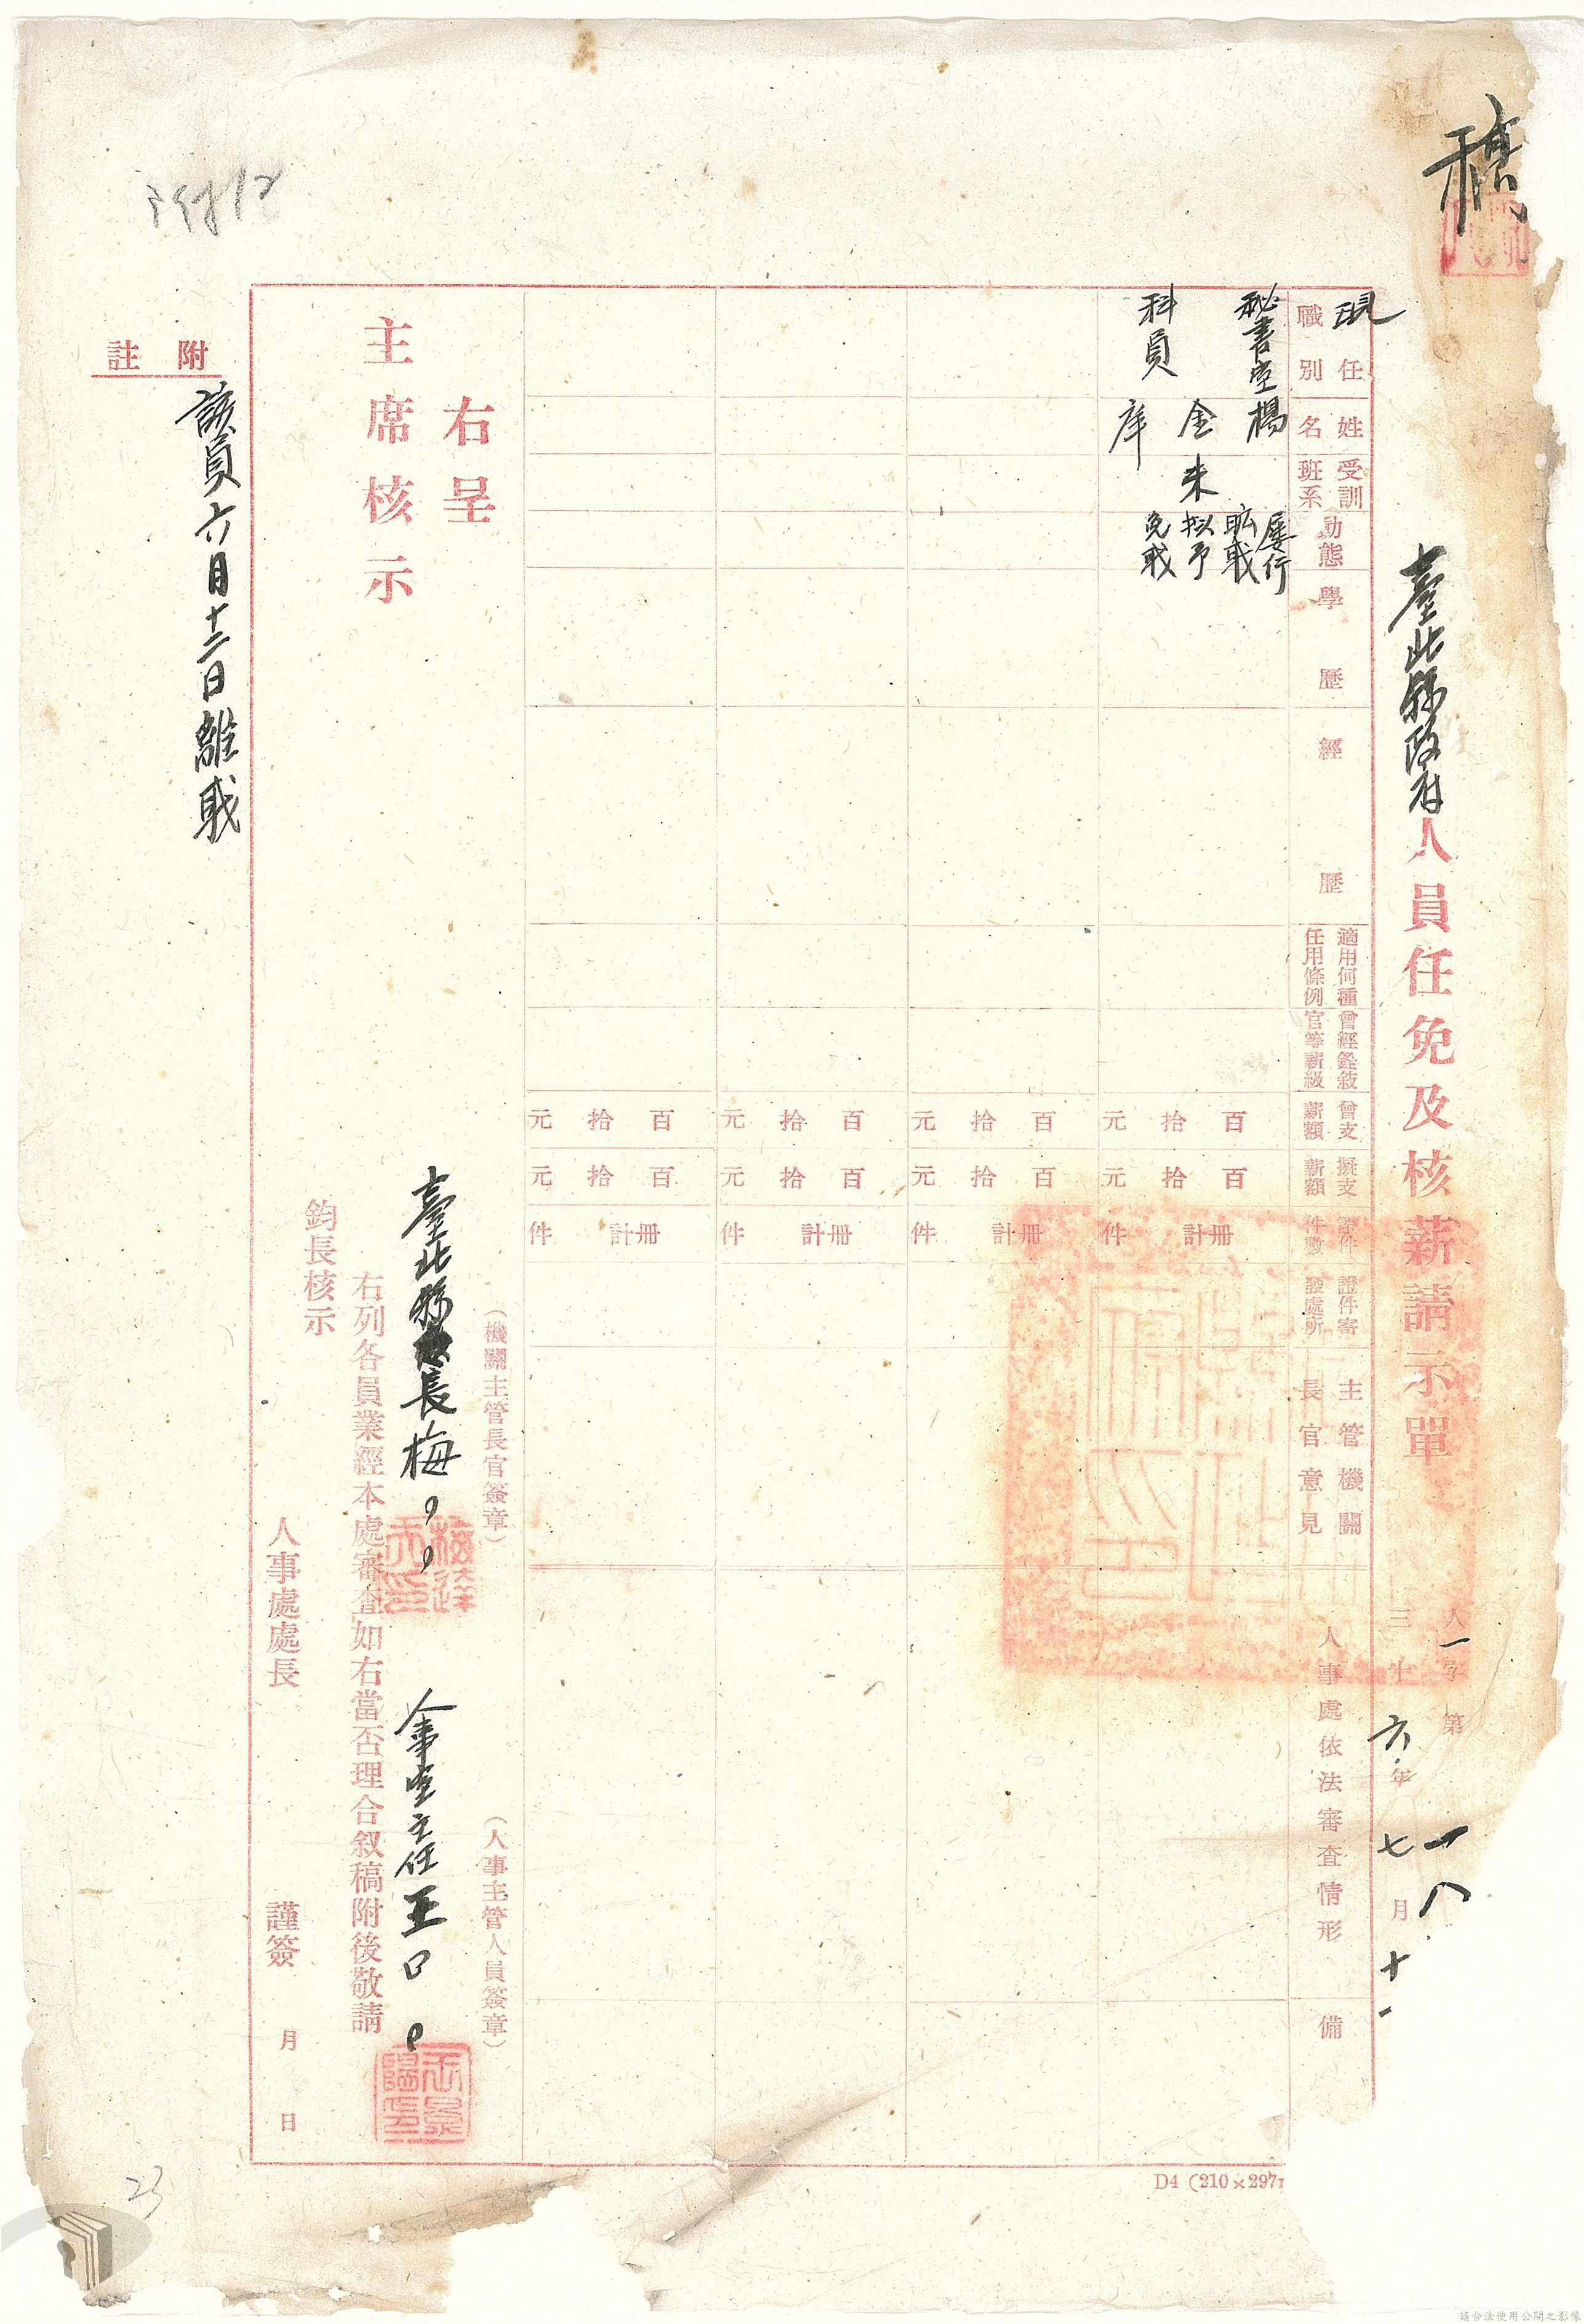 稿
臺北縣政府人員任免及核薪請示單
人一字第
三十六年七月十一
一八
現任職別
姓名
受訓班系
動態
學歷
經歷
適用何種任用條例
曾經銓敍官等薪級
曾支薪額
擬支薪額
證件件數
證件寄發處所
主管機關長官意見
人事處依法審查情形
備
秘書室
科員
楊金庠
未
屢行
曠職
擬予
免職
百拾元
百拾元
冊計件
百拾元
百拾元
冊計件
百拾元
百拾元
冊計件
百拾元
百拾元
冊計件
右呈
主席核示
(機關主管長官簽章)
臺北縣縣長梅
(人事主管人員簽章)
人事室主任王
右列各員業經本處審查如右當否理合叙稿附後敬請
鈞長核示
人事處處長
謹簽
月
日
附註
該員六月十二日離職
23
D4 (210×297
請合法使用公開之影像